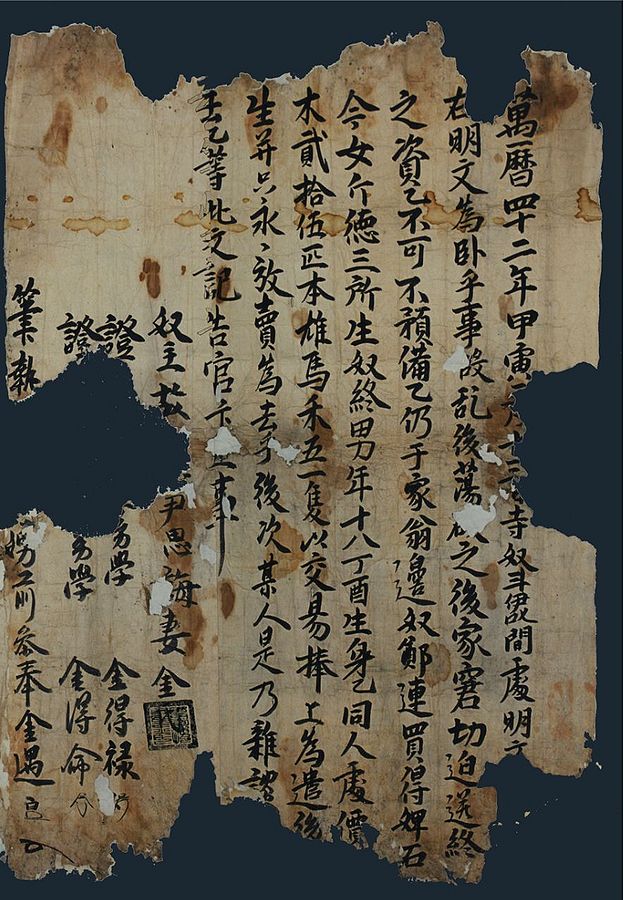 萬暦四十二年甲寅 十 寺奴斗 間處明文
右明文為臥乎事段乱後蕩 之後家窘切迫送終
之資乙不可不預備乙仍于家翁邊奴鄭連買得婢石
今女介德三所生奴終男年十八丁酉生身乙同人處價
木貳拾伍疋本雄馬禾五一隻以交易捧上為遣後
生幷以永〃放賣為去乎後次某人是乃雜談
乙等此文記告官卞正事
奴主故 尹思海妻金
證 幼學 金得祿
證 幼學 金得命
筆執 甥前參奉金遇